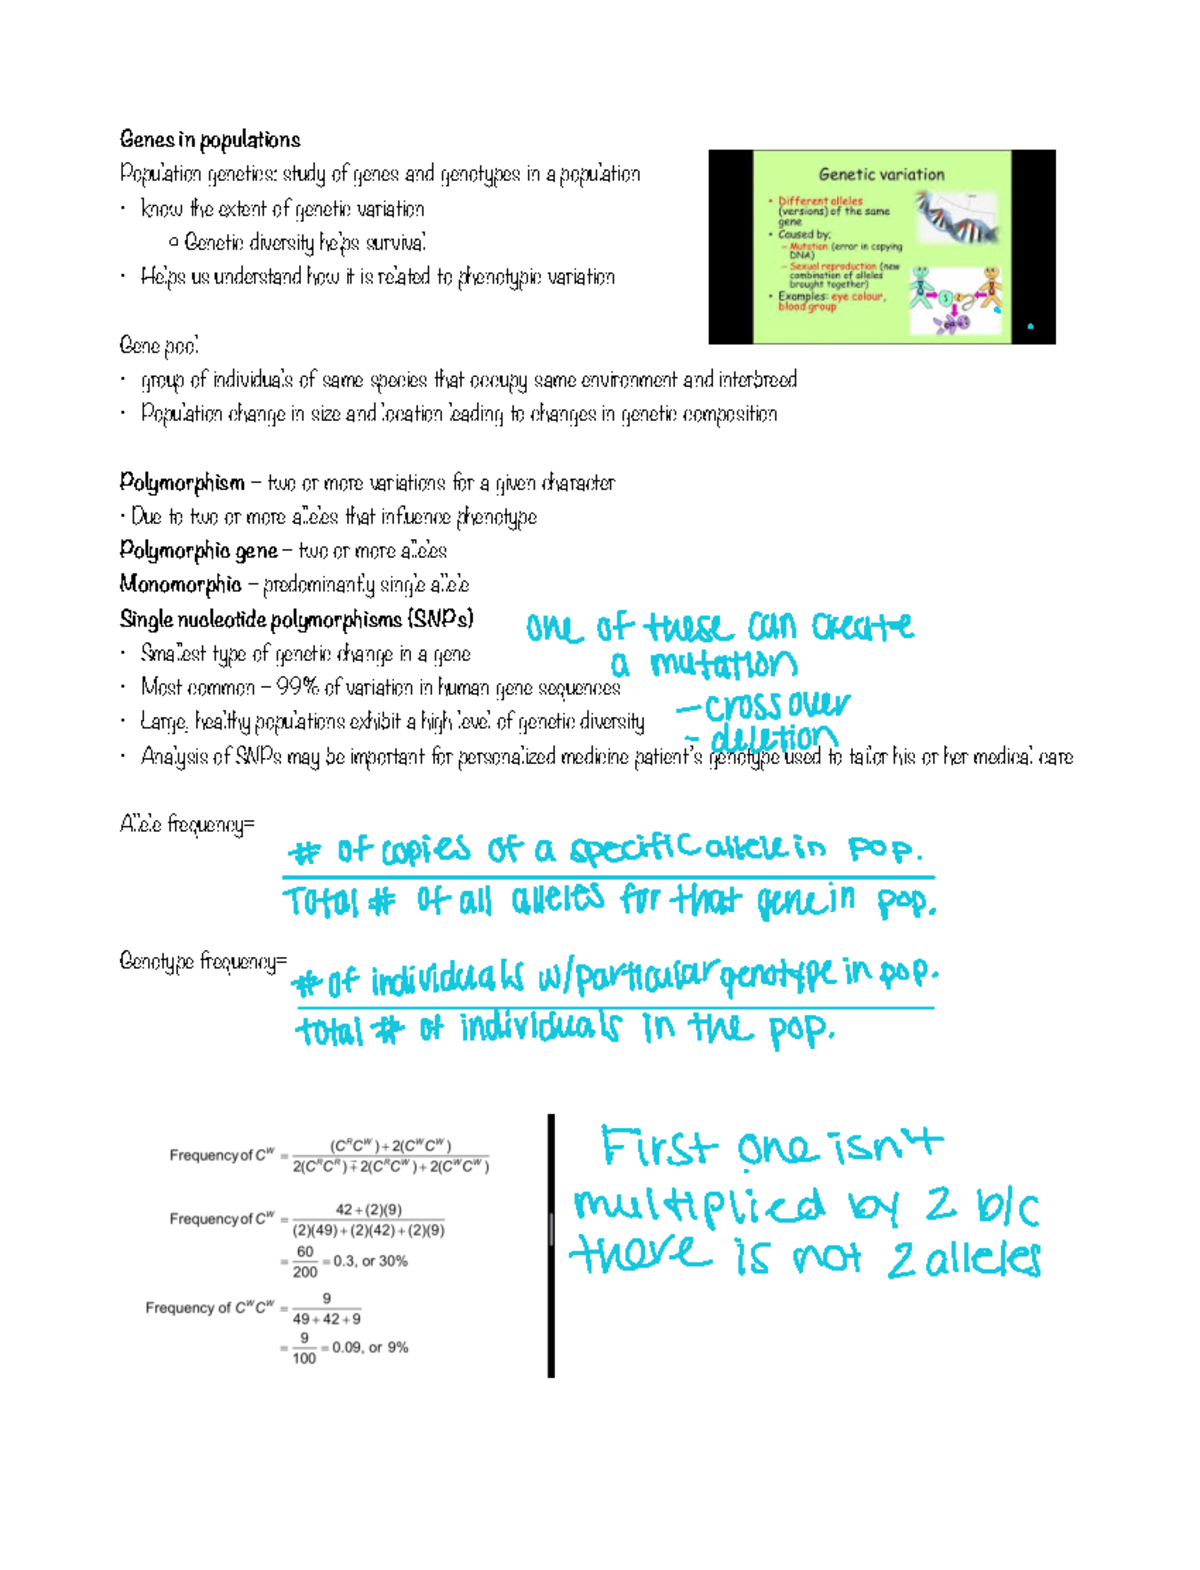 Genes in populations
Population genetics: study of genes and genotypes in a population
• know the extent of genetic variation
o Genetic diversity helps survival
• Helps us understand how it is related to phenotypic variation
Genetic variation
• Different alleles
(versions) of the same
gene
• Caused by:
– Mutation (error in copying
DNA)
– Sexual reproduction (new
combination of alleles
brought together)
• Examples: eye colour,
blood group
Gene pool
• group of individuals of same species that occupy same environment and interbreed
• Population change in size and location leading to changes in genetic composition
Polymorphism – two or more variations for a given character
• Due to two or more alleles that influence phenotype
Polymorphic gene – two or more alleles
Monomorphic – predominantly single allele
Single nucleotide polymorphisms (SNPs)
• Smallest type of genetic change in a gene
• Most common – 99% of variation in human gene sequences
• Large, healthy populations exhibit a high level of genetic diversity
• Analysis of SNPs may be important for personalized medicine patient's genotype used to tailor his or her medical care
one of these can create
a mutation
– crossover
– deletion
Allele frequency=
# of copies of a specific allele in pop.
Total # of all alleles for that gene in pop.
Genotype frequency=
# of individuals w/particular genotype in pop.
total # of individuals in the pop.
Frequency of Cᵂ = (CᴿCᵂ) + 2(CᵂCᵂ)
2(CᴿCᴿ) + 2(CᴿCᵂ) + 2(CᵂCᵂ)
Frequency of Cᵂ = 42 + (2)(9)
(2)(49) + (2)(42) + (2)(9)
= 60
200 = 0.3, or 30%
Frequency of CᵂCᵂ = 9
49 + 42 + 9
= 9
100 = 0.09, or 9%
First one isn't
multiplied by 2 b/c
there is not 2 alleles